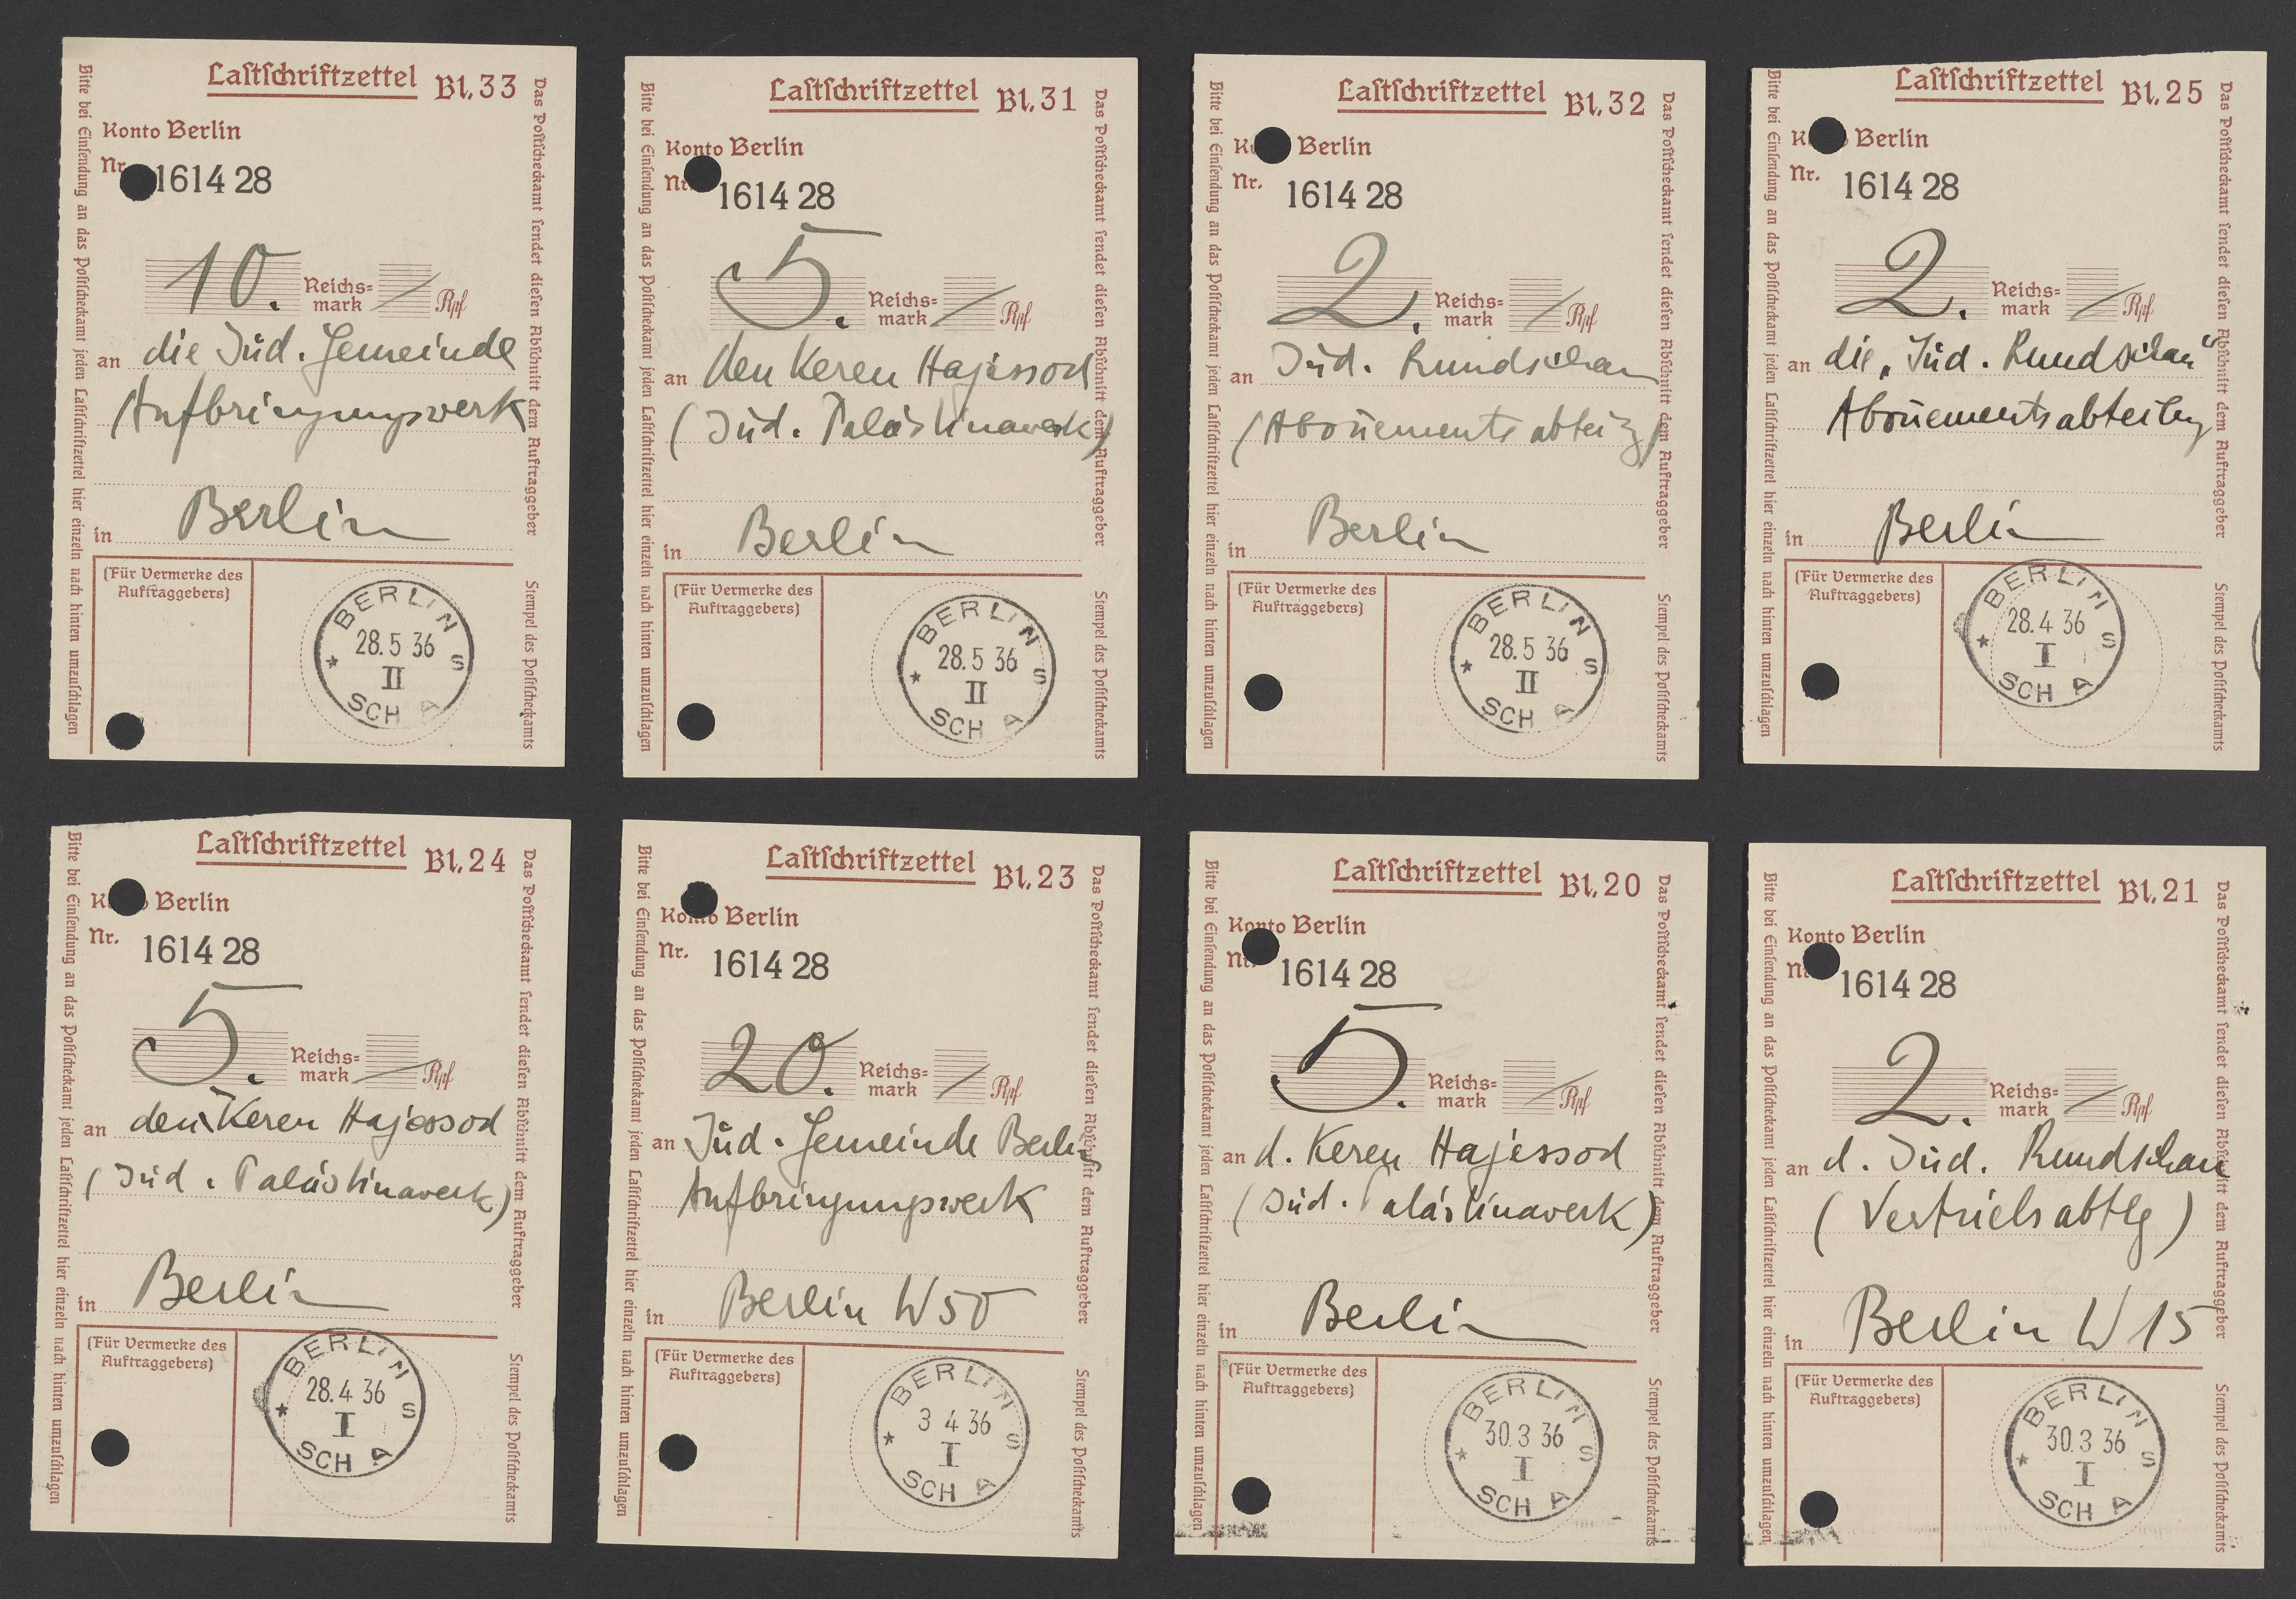 Lastschriftzettel Bl. 33
Konto Berlin
Nr. 1614 28
10. Reichs=
mark / Rpf
an die Jüd. Gemeinde
(Aufbringungswerk
in Berlin
(Für Vermerke des
Auftraggebers)
BERLIN
28.5 36
II
S
SCH A
Bitte bei Einsendung an das Postscheckamt jeden Lastschriftzettel hier einzeln nach hinten umzuschlagen
Das Postscheckamt sendet diesen Abschnitt dem Auftraggeber
Stempel des Postscheckamts
Lastschriftzettel Bl. 31
Konto Berlin
Nr. 1614 28
5. Reichs=
mark / Rpf
an den Keren Hajessod
(Jüd. Palästinawerk)
in Berlin
(Für Vermerke des
Auftraggebers)
BERLIN
28.5 36
II
S
SCH A
Bitte bei Einsendung an das Postscheckamt jeden Lastschriftzettel hier einzeln nach hinten umzuschlagen
Das Postscheckamt sendet diesen Abschnitt dem Auftraggeber
Stempel des Postscheckamts
Lastschriftzettel Bl. 32
Berlin
Nr. 1614 28
2. Reichs=
mark / Rpf
an Jüd. Rundschau
(Abonnementsabteilg)
in Berlin
(Für Vermerke des
Auftraggebers)
BERLIN
28.5 36
II
S
SCH A
Bitte bei Einsendung an das Postscheckamt jeden Lastschriftzettel hier einzeln nach hinten umzuschlagen
Das Postscheckamt sendet diesen Abschnitt dem Auftraggeber
Stempel des Postscheckamts
Lastschriftzettel Bl. 25
Berlin
Nr. 1614 28
2. Reichs=
mark / Rpf
an die „Jüd. Rundschau“
Abon̄ementsabteilung
in Berlin
(Für Vermerke des
Auftraggebers)
BERLIN
28.4 36
I
S
SCH A
Bitte bei Einsendung an das Postscheckamt jeden Lastschriftzettel hier einzeln nach hinten umzuschlagen
Das Postscheckamt sendet diesen Abschnitt dem Auftraggeber
Stempel des Postscheckamts
Lastschriftzettel Bl. 24
Berlin
Nr. 1614 28
5. Reichs=
mark / Rpf
an den Keren Hajessod
(Jüd. Palästinawerk)
in Berlin
(Für Vermerke des
Auftraggebers)
BERLIN
28.4 36
I
S
SCH A
Bitte bei Einsendung an das Postscheckamt jeden Lastschriftzettel hier einzeln nach hinten umzuschlagen
Das Postscheckamt sendet diesen Abschnitt dem Auftraggeber
Stempel des Postscheckamts
Lastschriftzettel Bl. 23
Konto Berlin
Nr. 1614 28
20. Reichs=
mark / Rpf
an Jüd. Gemeinde Berlin
Aufbringungswerk
in Berlin W 50
(Für Vermerke des
Auftraggebers)
BERLIN
3 4 36
I
S
SCH A
Bitte bei Einsendung an das Postscheckamt jeden Lastschriftzettel hier einzeln nach hinten umzuschlagen
Das Postscheckamt sendet diesen Abschnitt dem Auftraggeber
Stempel des Postscheckamts
Lastschriftzettel Bl. 20
Konto Berlin
Nr. 1614 28
5. Reichs=
mark / Rpf
an d. Keren Hajessod
(Jüd. Palästinawerk)
in Berlin
(Für Vermerke des
Auftraggebers)
BERLIN
30.3 36
I
S
SCH A
Bitte bei Einsendung an das Postscheckamt jeden Lastschriftzettel hier einzeln nach hinten umzuschlagen
Das Postscheckamt sendet diesen Abschnitt dem Auftraggeber
Stempel des Postscheckamts
Lastschriftzettel Bl. 21
Konto Berlin
Nr. 1614 28
2. Reichs=
mark / Rpf
an d. Jüd. Rundschau
(Vertriebsabtlg)
in Berlin W 15
(Für Vermerke des
Auftraggebers)
BERLIN
30.3 36
I
S
SCH A
Bitte bei Einsendung an das Postscheckamt jeden Lastschriftzettel hier einzeln nach hinten umzuschlagen
Das Postscheckamt sendet diesen Abschnitt dem Auftraggeber
Stempel des Postscheckamts